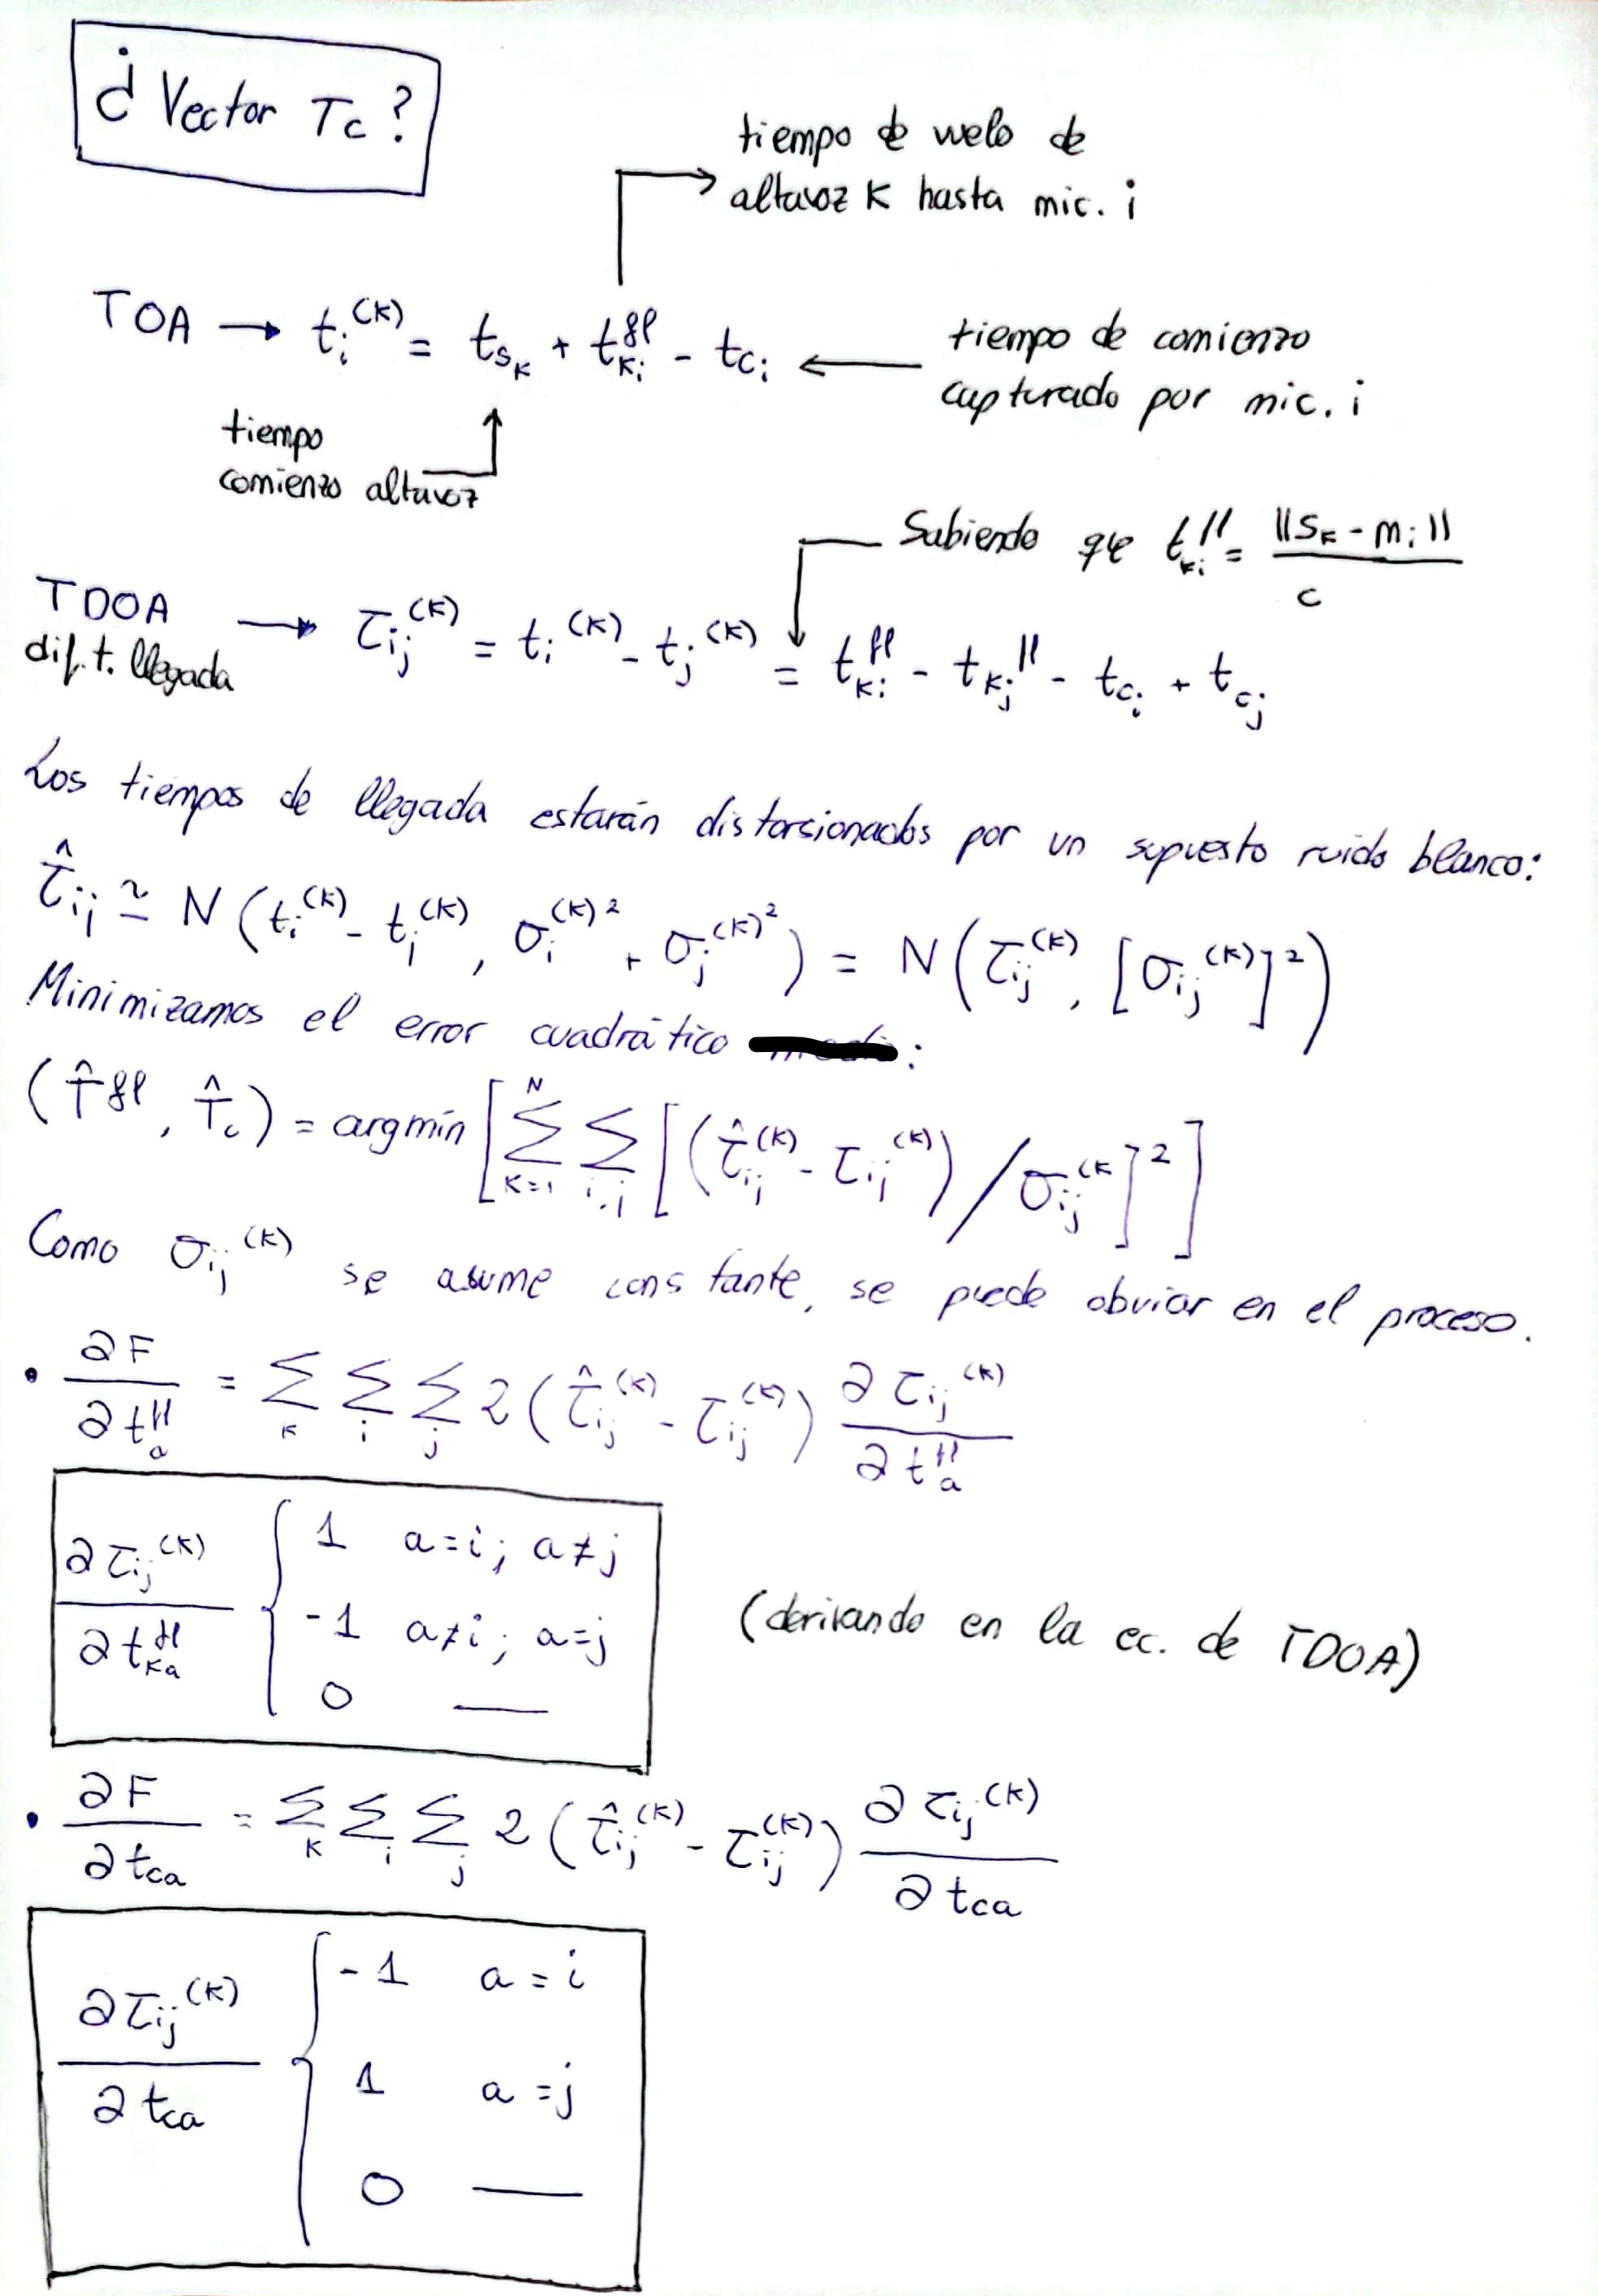 ¿ Vector Tc?
tiempo de vuelo de
altavoz K hasta mic. i
TOA → t_i^(K) = t_{s_K} + t_{Ki}^{fl} - t_{c_i} ←
tiempo de comienzo
capturado por mic. i
tiempo
comienzo altavoz
Sabiendo que t_{Ki}^{fl} = ||S_K - m_i|| / c
TDOA → τ_ij^(K) = t_i^(K) - t_j^(K) = t_{Ki}^{fl} - t_{Kj}^{fl} - t_{c_i} + t_{c_j}
dif. t. llegada
Los tiempos de llegada estarán distorsionados por un supuesto ruido blanco:
τ̂_ij ≃ N(t_i^(K) - t_j^(K), σ_i^(K)² + σ_j^(K)²) = N(τ_ij^(K), [σ_ij^(K)]²)
Minimizamos el error cuadrático :
(T̂^{fl}, T̂_c) = argmin [∑_{K=1}^N ∑_{i,j} [(τ̂_ij^(K) - τ_ij^(K)) / σ_ij^(K]²]
Como σ_ij^(K) se asume constante, se puede obviar en el proceso.
• ∂F / ∂t_a^{fl} = ∑_K ∑_i ∑_j 2(τ̂_ij^(K) - τ_ij^(K)) ∂τ_ij^(K) / ∂t_a^{fl}
∂τ_ij^(K) / ∂t_{Ka}^{fl} { 1 a=i; a≠j
-1 a≠i; a=j
0 —
(derivando en la ec. de TDOA)
• ∂F / ∂t_{ca} = ∑_K ∑_i ∑_j 2(τ̂_ij^(K) - τ_ij^(K)) ∂τ_ij^(K) / ∂t_{ca}
∂τ_ij^(K) / ∂t_{ca} { -1 a=i
1 a=j
0 —